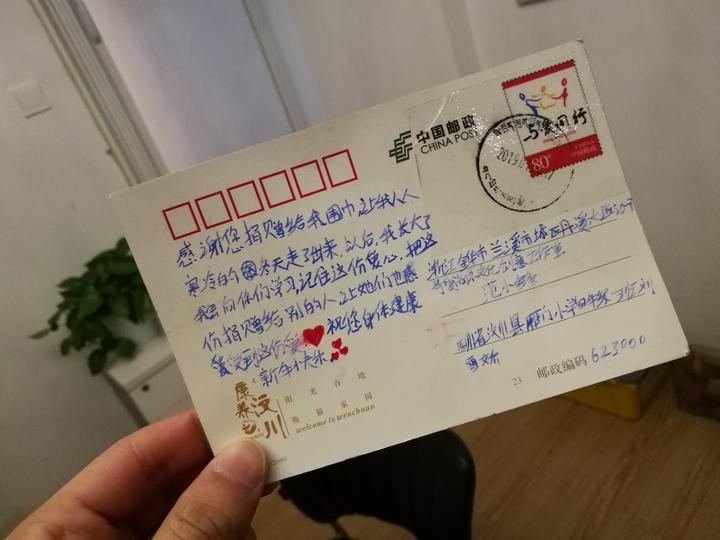 中国邮政
CHINA POST
与爱同行
80分
中国邮政
CHINA
2019.0
感谢您捐赠给我围巾,让我从
寒冷的冬天走了出来,以后,我长大了
我会向你们学习,记住这份爱心,把这
份捐赠给别的人,让她们也感
受到这份爱 祝您身体健康
新年快乐
浙江 金华市 兰溪市
文化创意工作室
范小
四川省汶川县雁门小学四年级 刘
23 邮政编码 623000
康养汶川
阳光谷地
熊猫家园
welcome to wenchuan